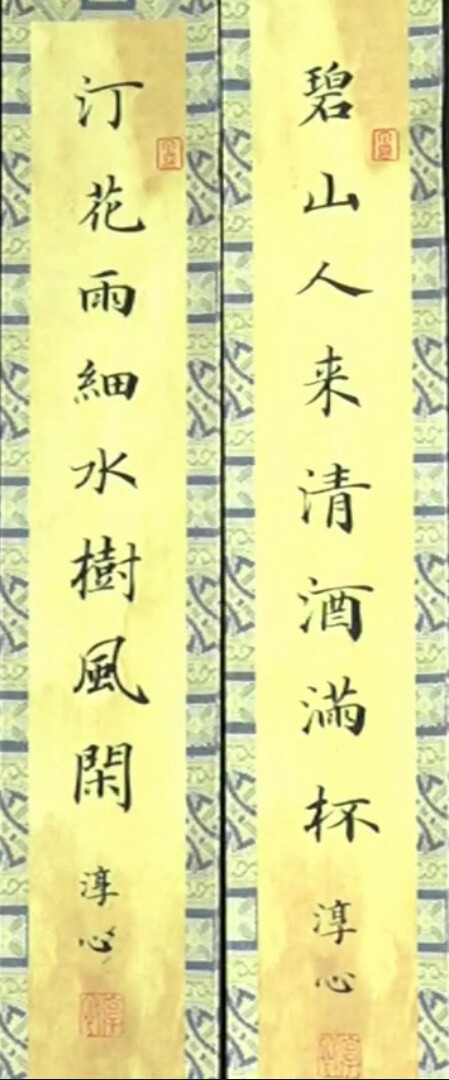 碧山人来清酒滿杯
淳心
汀花雨細水樹風閑
淳心